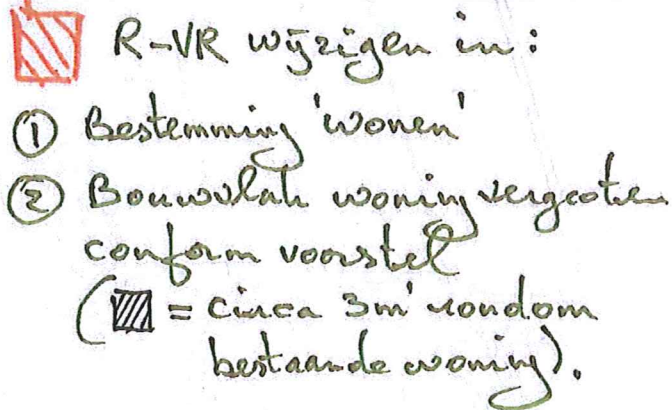 R-VR wijzigen in:
① Bestemming 'wonen'
② Bouwvlak woning vergroten
conform voorstel
( = circa 3m' rondom
bestaande woning).